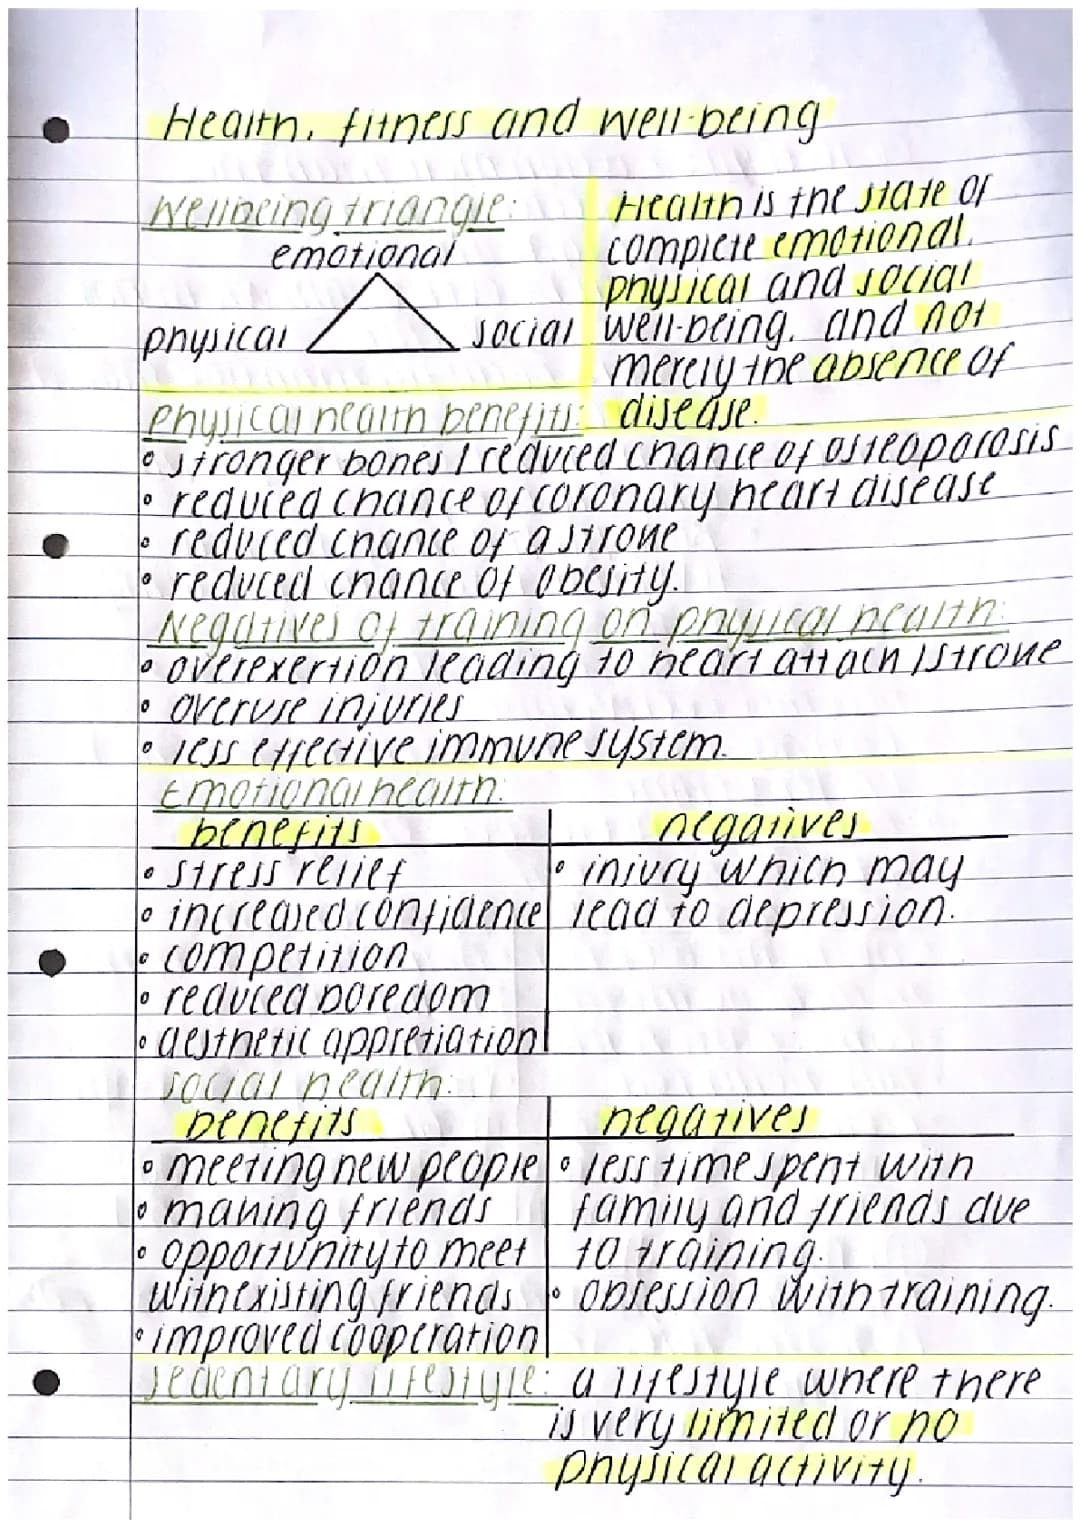 Health, fitness and well-being
Wellbeing triangle:
emotional
physical
social
Health is the state of
complete emotional,
physical and social
well-being, and not
merely the absence of
disease.
Physical health benefits:
• stronger bones / reduced chance of osteoporosis
• reduced chance of coronary heart disease
• reduced chance of a stroke
• reduced chance of obesity.
Negatives of training on physical health:
• overexertion leading to heart attack / stroke
• overuse injuries
• less effective immune system.
Emotional health:
benefits
• stress relief
• increased confidence
• competition
• reduced boredom
• aesthetic appretiation
negatives
• injury which may
lead to depression.
social health:
benefits
• meeting new people
• making friends
• opportunity to meet
with existing friends
• improved cooperation
negatives
• less time spent with
family and friends due
to training.
• obsession with training.
Sedentary lifestyle: a lifestyle where there
is very limited or no
physical activity.